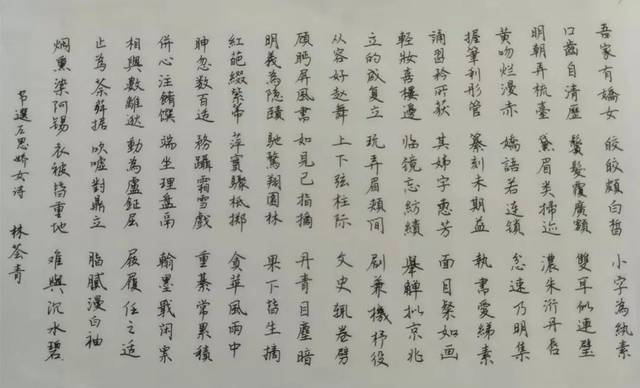 吾家有嬌女 皎皎頗白皙 小字為紈素
口齒自清歷 鬢髮覆廣額 雙耳似連璧
明朝弄梳臺 黛眉类掃迹 濃朱衍丹唇
黄吻烂漫赤 嬌語若連鎖 忿速乃明集
握筆利彤管 篆刻未期益 執書愛綈素
誦習矜所获 其姊字惠芳 面目粲如画
輕妝喜樓邊 临镜忘紡績 舉觶拟京兆
立的成复立 玩弄眉頰间 劇兼機杼役
从容好赵舞 上下弦柱际 文史辄卷襞
顾眄屏風書 如見已指摘 丹青日塵暗
明義為隱賾 馳騖翔園林 果下皆生摘
红葩缀紫帝 萍實驟柢掷 貪華風雨中
眒忽数百造 務躡霜雪戲 重綦常累積
併心注餚馔 端坐理盤鬲 翰墨戢闲案
相與數離逖 動為盧鉦屈 屐履任之适
止為荼荈据 吹嘘對鼎立 脂膩漫白袖
烟熏染阿锡 衣被皆重地 难與沉水碧
节選左思嬌女诗
林荟青